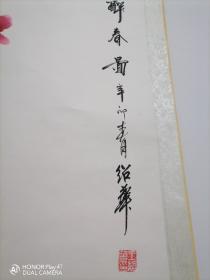 醉春图 辛卯春月 绍华
HONOR PLAY 4T
DUAL CAMERA